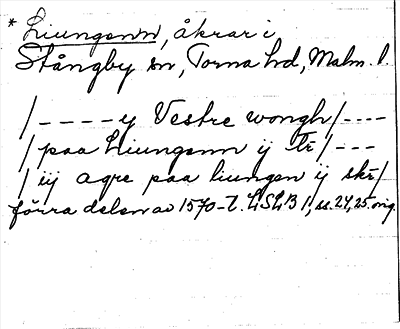 * Liungenn, åkrar i
Stångby sn, Torna hd, Malm. l.
/ - - - - y Vestre wongh / - - - -
/ paa Liungenn ij tr / - - -
/ iij agre paa liungen ij skr /
förra delen av 1570-t. LSLB 1, ss. 24, 25. orig.